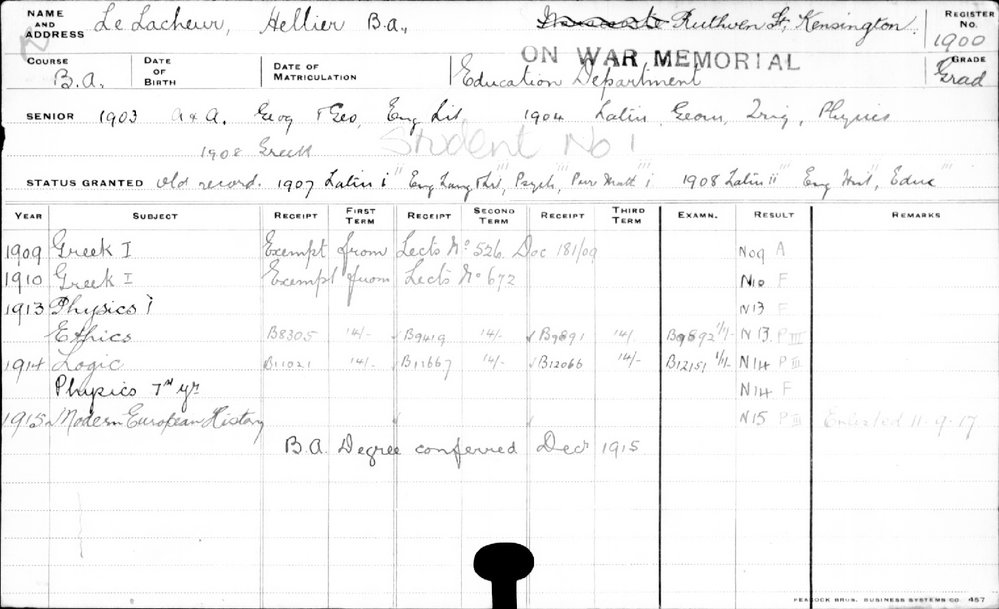 NAME AND ADDRESS Le Lacheur, Hellier B.A., Ruthven St, Kensington REGISTER No. 1900
ON WAR MEMORIAL
COURSE B.A. DATE OF BIRTH DATE OF MATRICULATION Education Department GRADE Grad
SENIOR 1903 A & A. Geog & Geo, Eng Lit, 1904 Latin, Geom, Trig, Physics
Student No 1
1908 Greek
STATUS GRANTED old record. 1907 Latin i Eng Lang & Lit, Psych, Pure Math i 1908 Latin ii Eng Hist, Educ
YEAR SUBJECT RECEIPT FIRST TERM RECEIPT SECOND TERM RECEIPT THIRD TERM EXAMN. RESULT REMARKS
1909 Greek I Exempt from Lects No 526 Doc 181/09 N09 A
1910 Greek I Exempt from Lects No 672 N10 F
1913 Physics i N13 F
Ethics B8305 14/- B9419 14/- B9891 14/ B9892 1/1- N13 P III
1914 Logic B11021 14/- B11667 14/- B12066 14/- B12151 1/1- N14 P III
Physics N14 F
1915 Modern European History N15 P III Enlisted 11.9.17
B.A. Degree conferred Decr 1915
PEACOCK BROS. BUSINESS SYSTEMS CO. 457